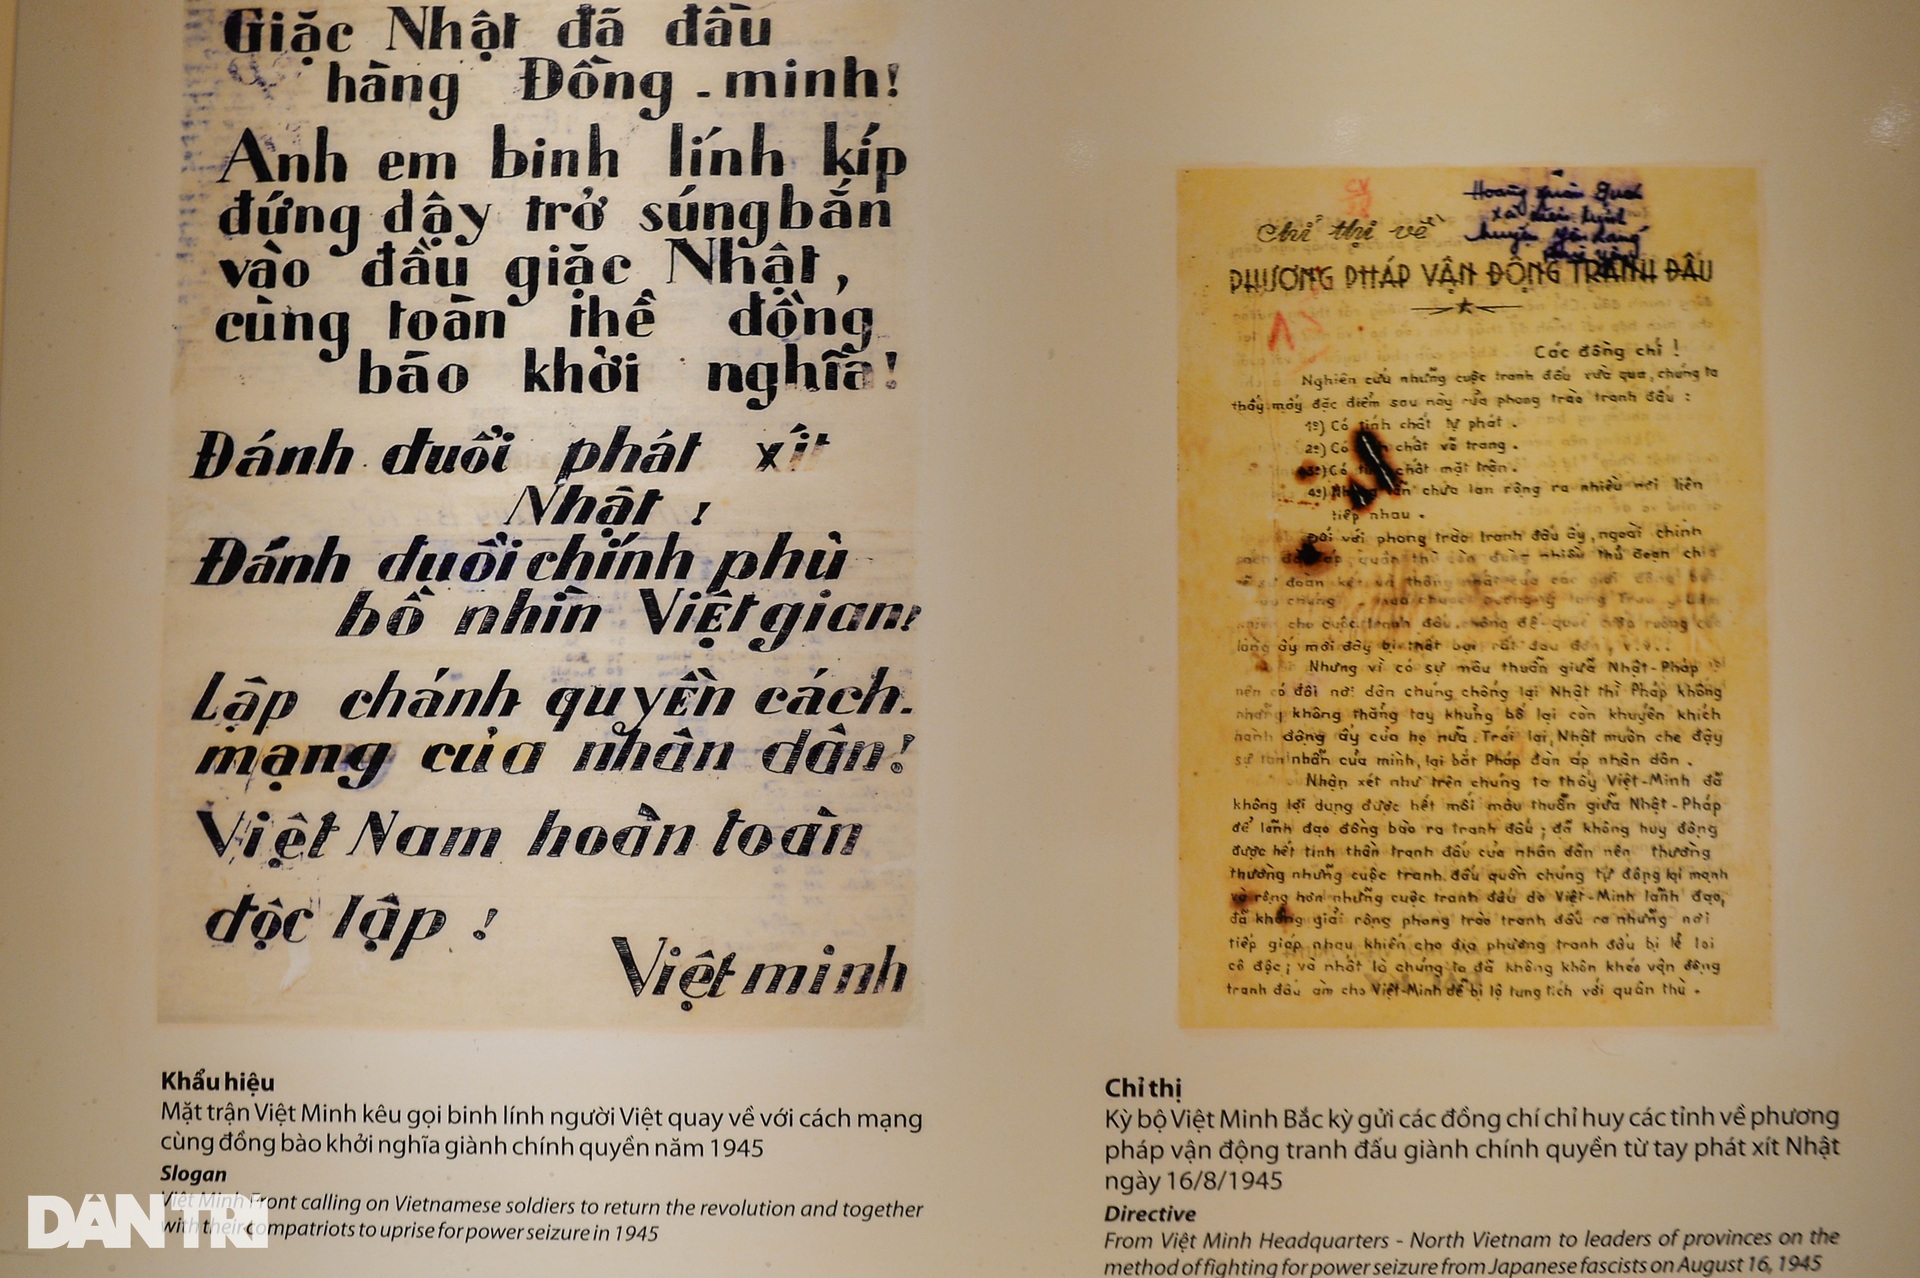 Giặc Nhật đã đầu
hàng Đồng-minh!
Anh em binh lính kíp
đứng dậy trở súng bắn
vào đầu giặc Nhật,
cùng toàn thể đồng
bào khởi nghĩa!
Đánh đuổi phát xít
Nhật!
Đánh đuổi chính phủ
bồ nhìn Việt gian!
Lập chánh quyền cách-
mạng của nhân dân!
Việt Nam hoàn toàn
độc lập!
Việt minh
Khẩu hiệu
Mặt trận Việt Minh kêu gọi binh lính người Việt quay về với cách mạng
cùng đồng bào khởi nghĩa giành chính quyền năm 1945
Slogan
Việt Minh Front calling on Vietnamese soldiers to return the revolution and together
with their compatriots to uprise for power seizure in 1945
DÂN TRÍ
Chỉ thị về
PHƯƠNG PHÁP VẬN ĐỘNG TRANH ĐẤU
Các đồng chí!
Nghiên cứu những cuộc tranh đấu vừa qua, chúng ta
thấy mấy đặc điểm sau này của phong trào tranh đấu:
1º) Có tính chất tự phát.
2º) Có chất võ trang.
3º) Có chất mặt trận.
4º) chưa lan rộng ra nhiều nơi liên
tiếp nhau.
Đối với phong trào tranh đấu ấy, ngoài chính
quân thù còn dùng nhiều thủ đoạn chia
đoàn kết và thống nhất của các giới
cho cuộc tranh đấu
làng ấy mới đây bị thất bại rất đau đớn, v.v..
Nhưng vì có sự mâu thuẫn giữa Nhật-Pháp
nên có đôi nơi dân chúng chống lại Nhật thì Pháp không
những không thẳng tay khủng bố lại còn khuyến khích
hành động ấy của họ nữa. Trái lại, Nhật muốn che đậy
sự tàn nhẫn của mình, lại bắt Pháp đàn áp nhân dân.
Nhận xét như trên chúng ta thấy Việt-Minh đã
không lợi dụng được hết mối mâu thuẫn giữa Nhật-Pháp
để lãnh đạo đồng bào ra tranh đấu; đã không huy động
được hết tinh thần tranh đấu của nhân dân nên thường
thường những cuộc tranh đấu quần chúng tự động lại mạnh
và rộng hơn những cuộc tranh đấu do Việt-Minh lãnh đạo,
đã không giải rộng phong trào tranh đấu ra những nơi
tiếp giáp nhau khiến cho địa phương tranh đấu bị lẻ loi
cô độc; và nhất là chúng ta đã không khôn khéo vận động
tranh đấu làm cho Việt-Minh dễ bị lộ tung tích với quân thù.
Chỉ thị
Kỳ bộ Việt Minh Bắc kỳ gửi các đồng chí chỉ huy các tỉnh về phương
pháp vận động tranh đấu giành chính quyền từ tay phát xít Nhật
ngày 16/8/1945
Directive
From Việt Minh Headquarters - North Vietnam to leaders of provinces on the
method of fighting for power seizure from Japanese fascists on August 16, 1945